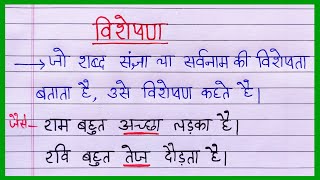 विशेषण
→ जो शब्द संज्ञा या सर्वनाम की विशेषता
बताता है, उसे विशेषण कहते हैं।
जैसे- राम बहुत अच्छा लड़का है।
रवि बहुत तेज दौड़ता है।